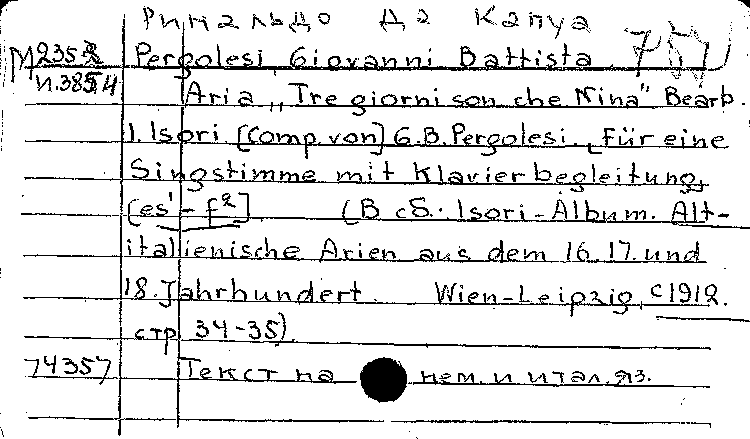 Ринальдо да Капуа
М 235
Pergolesi, Giovanni Battista
Aria „Tre giorni son che Nina" Bearb.
I. Isori [Comp. von] G.B. Pergolesi. [Für eine
Singstimme mit Klavierbegleitung,
[es'-f²] (В сб.: Isori-Album. Alt-
italienische Arien aus dem 16. 17. und
18. Jahrhundert. Wien-Leipzig, c 1912.
стр. 34-35).
74357 Текст на нем. и итал. яз.